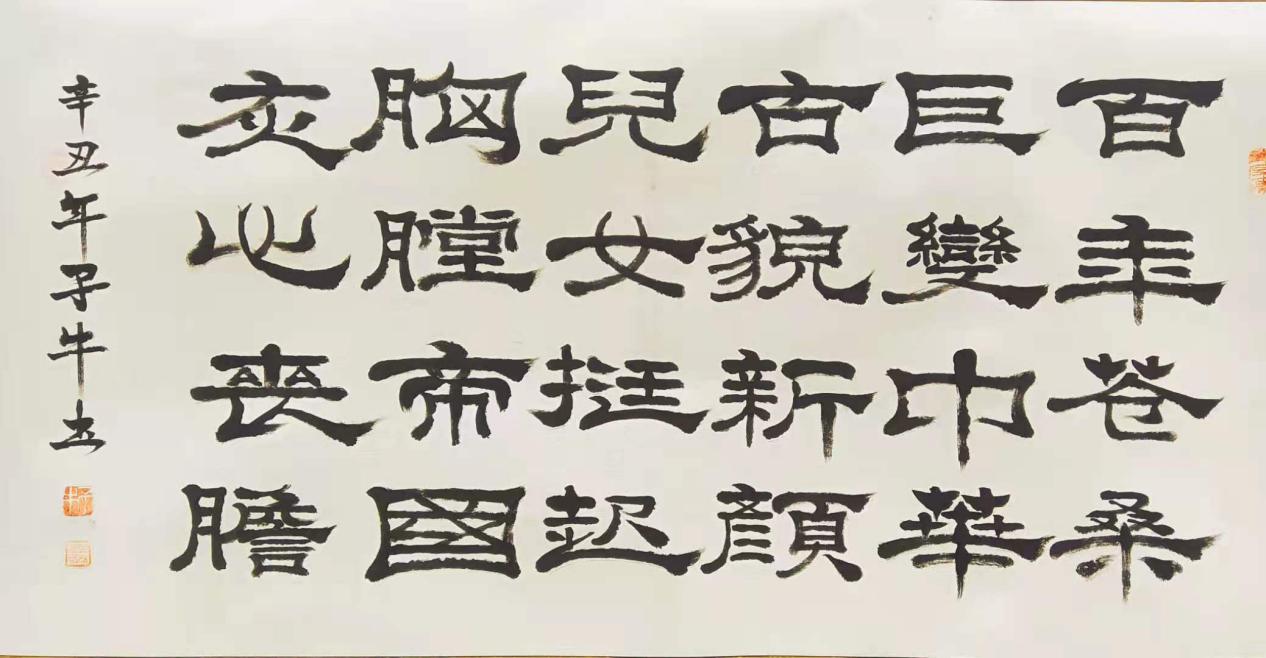 百年苍桑
巨變中華
古貌新顏
兒女挺起
胸膛帝國
灰心喪膽
辛丑年子牛书